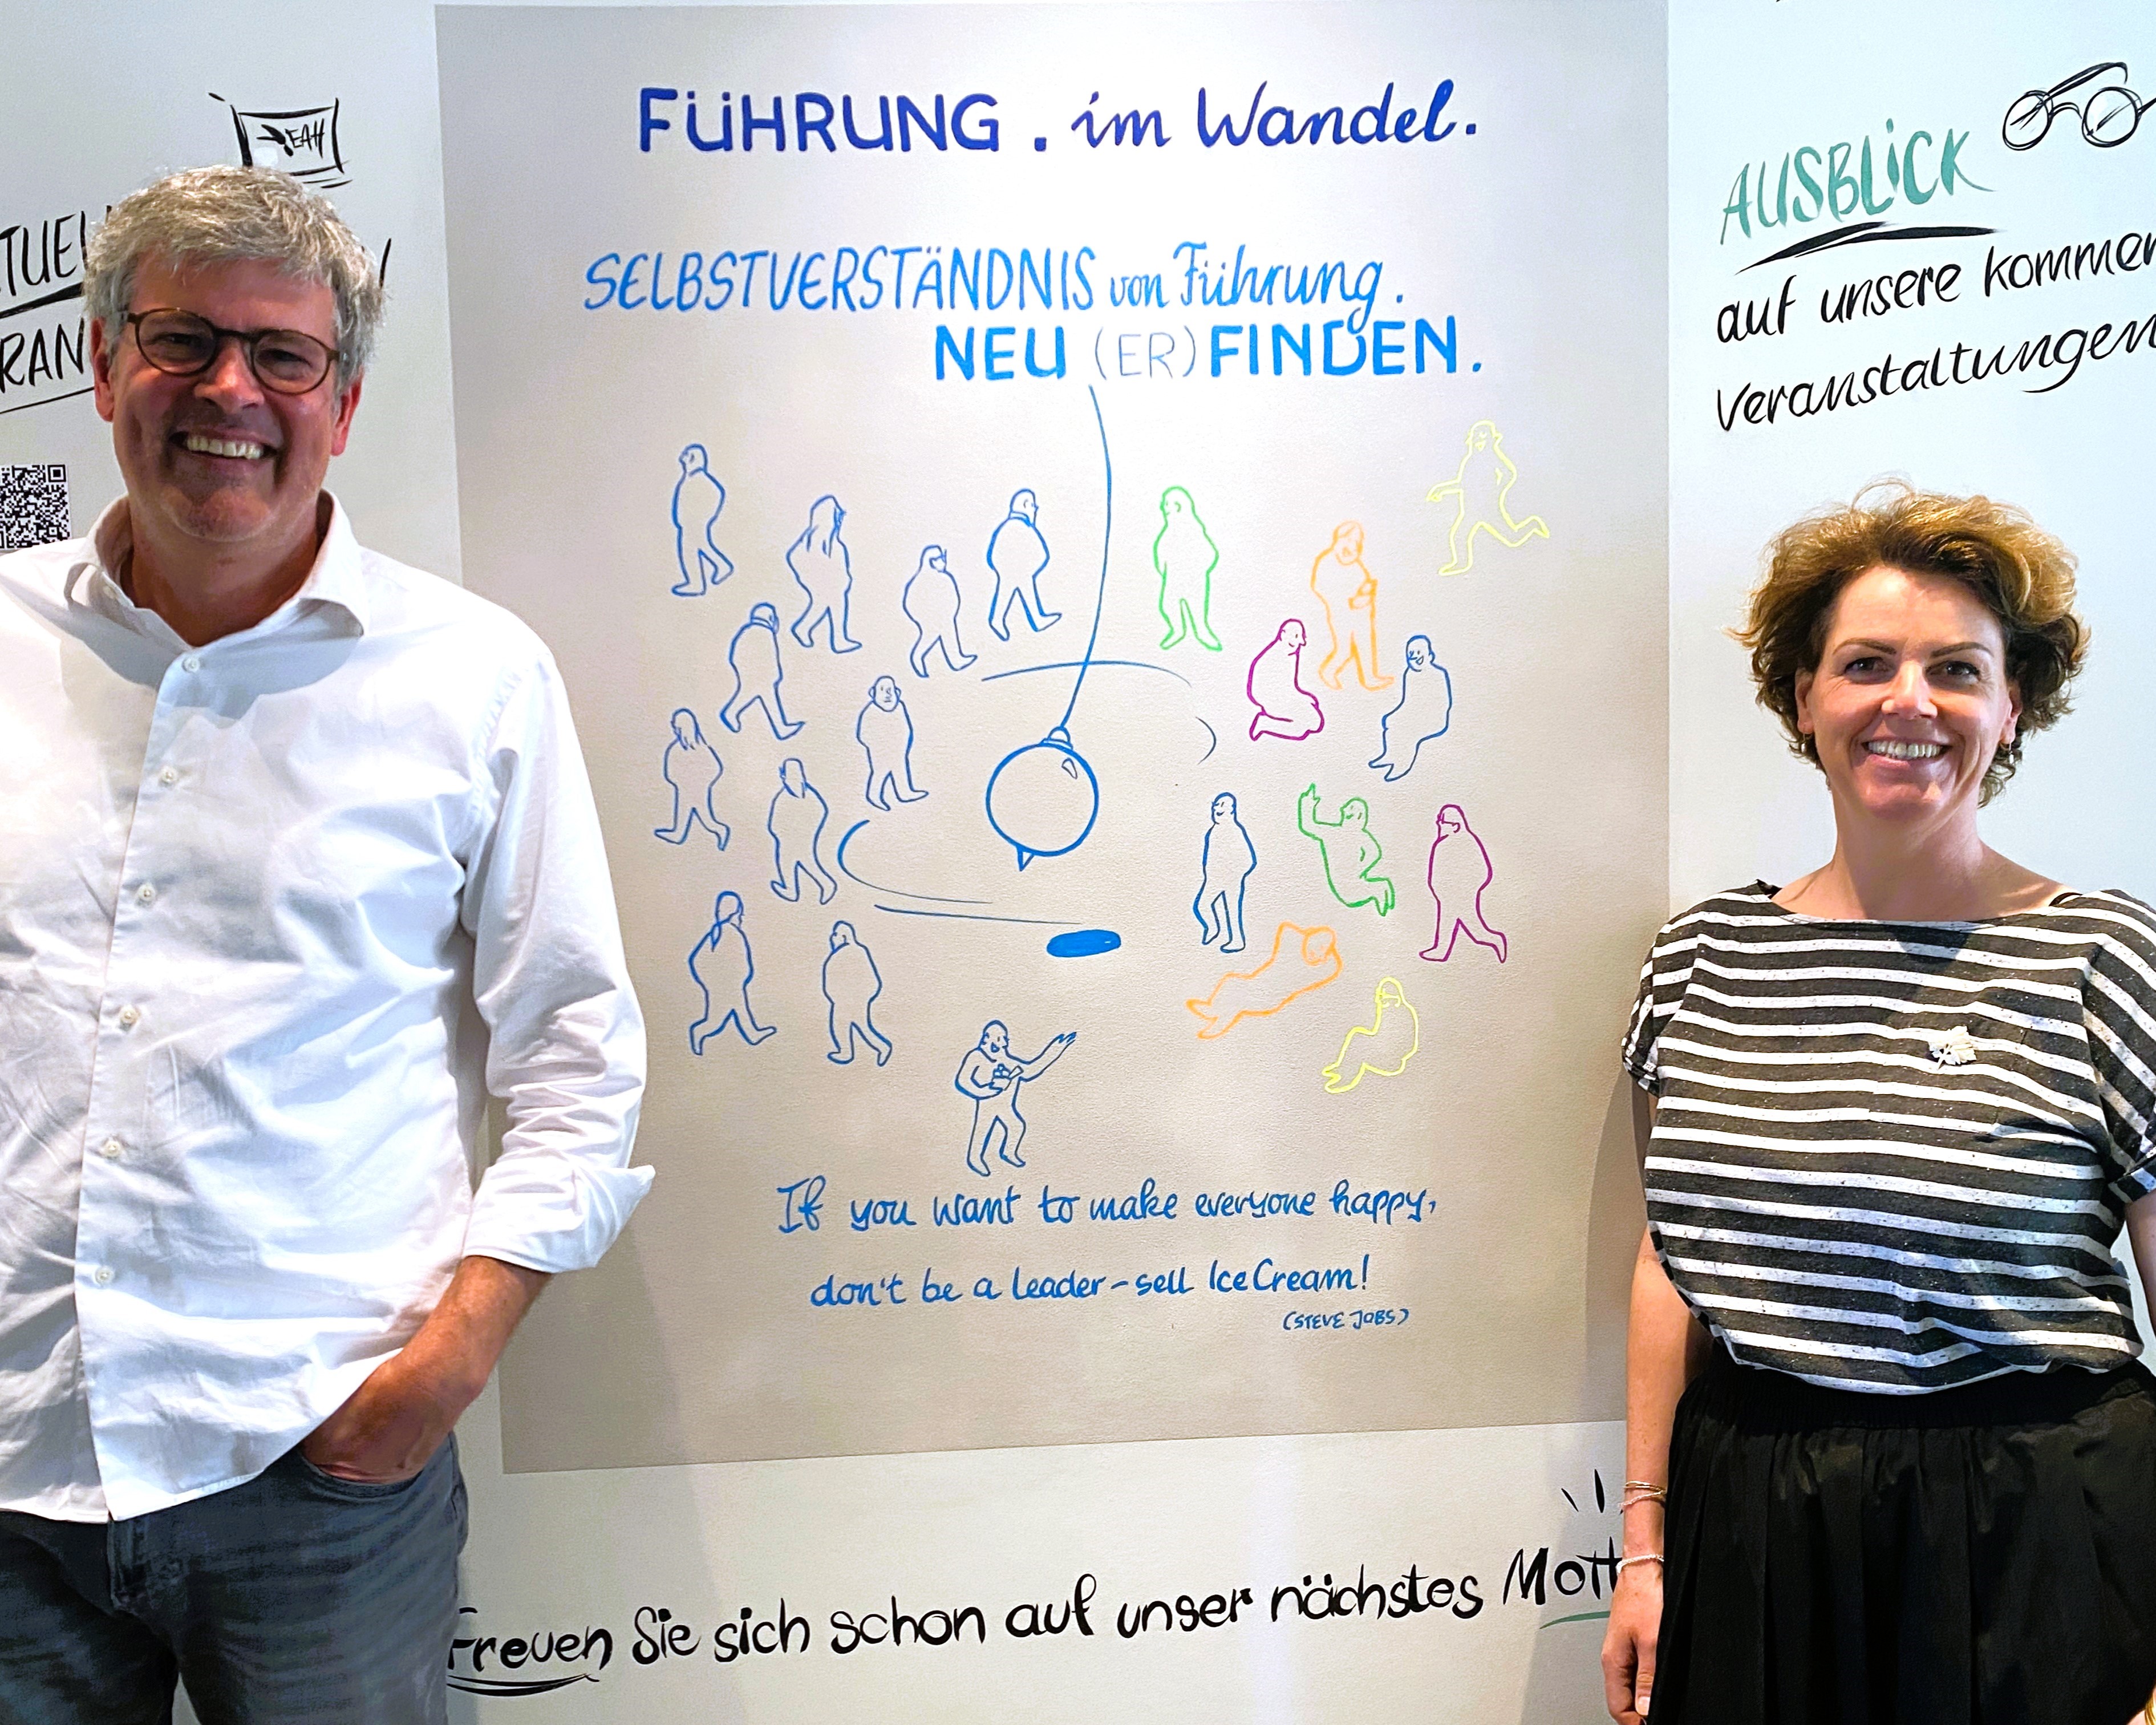 YEAH
FÜHRUNG. im Wandel.
SELBSTVERSTÄNDNIS von Führung.
NEU (ER)FINDEN.
If you want to make everyone happy,
don't be a leader - sell Ice Cream!
(STEVE JOBS)
AUSBLICK
auf unsere
Veranstaltungen
Freuen Sie sich schon auf unser nächstes